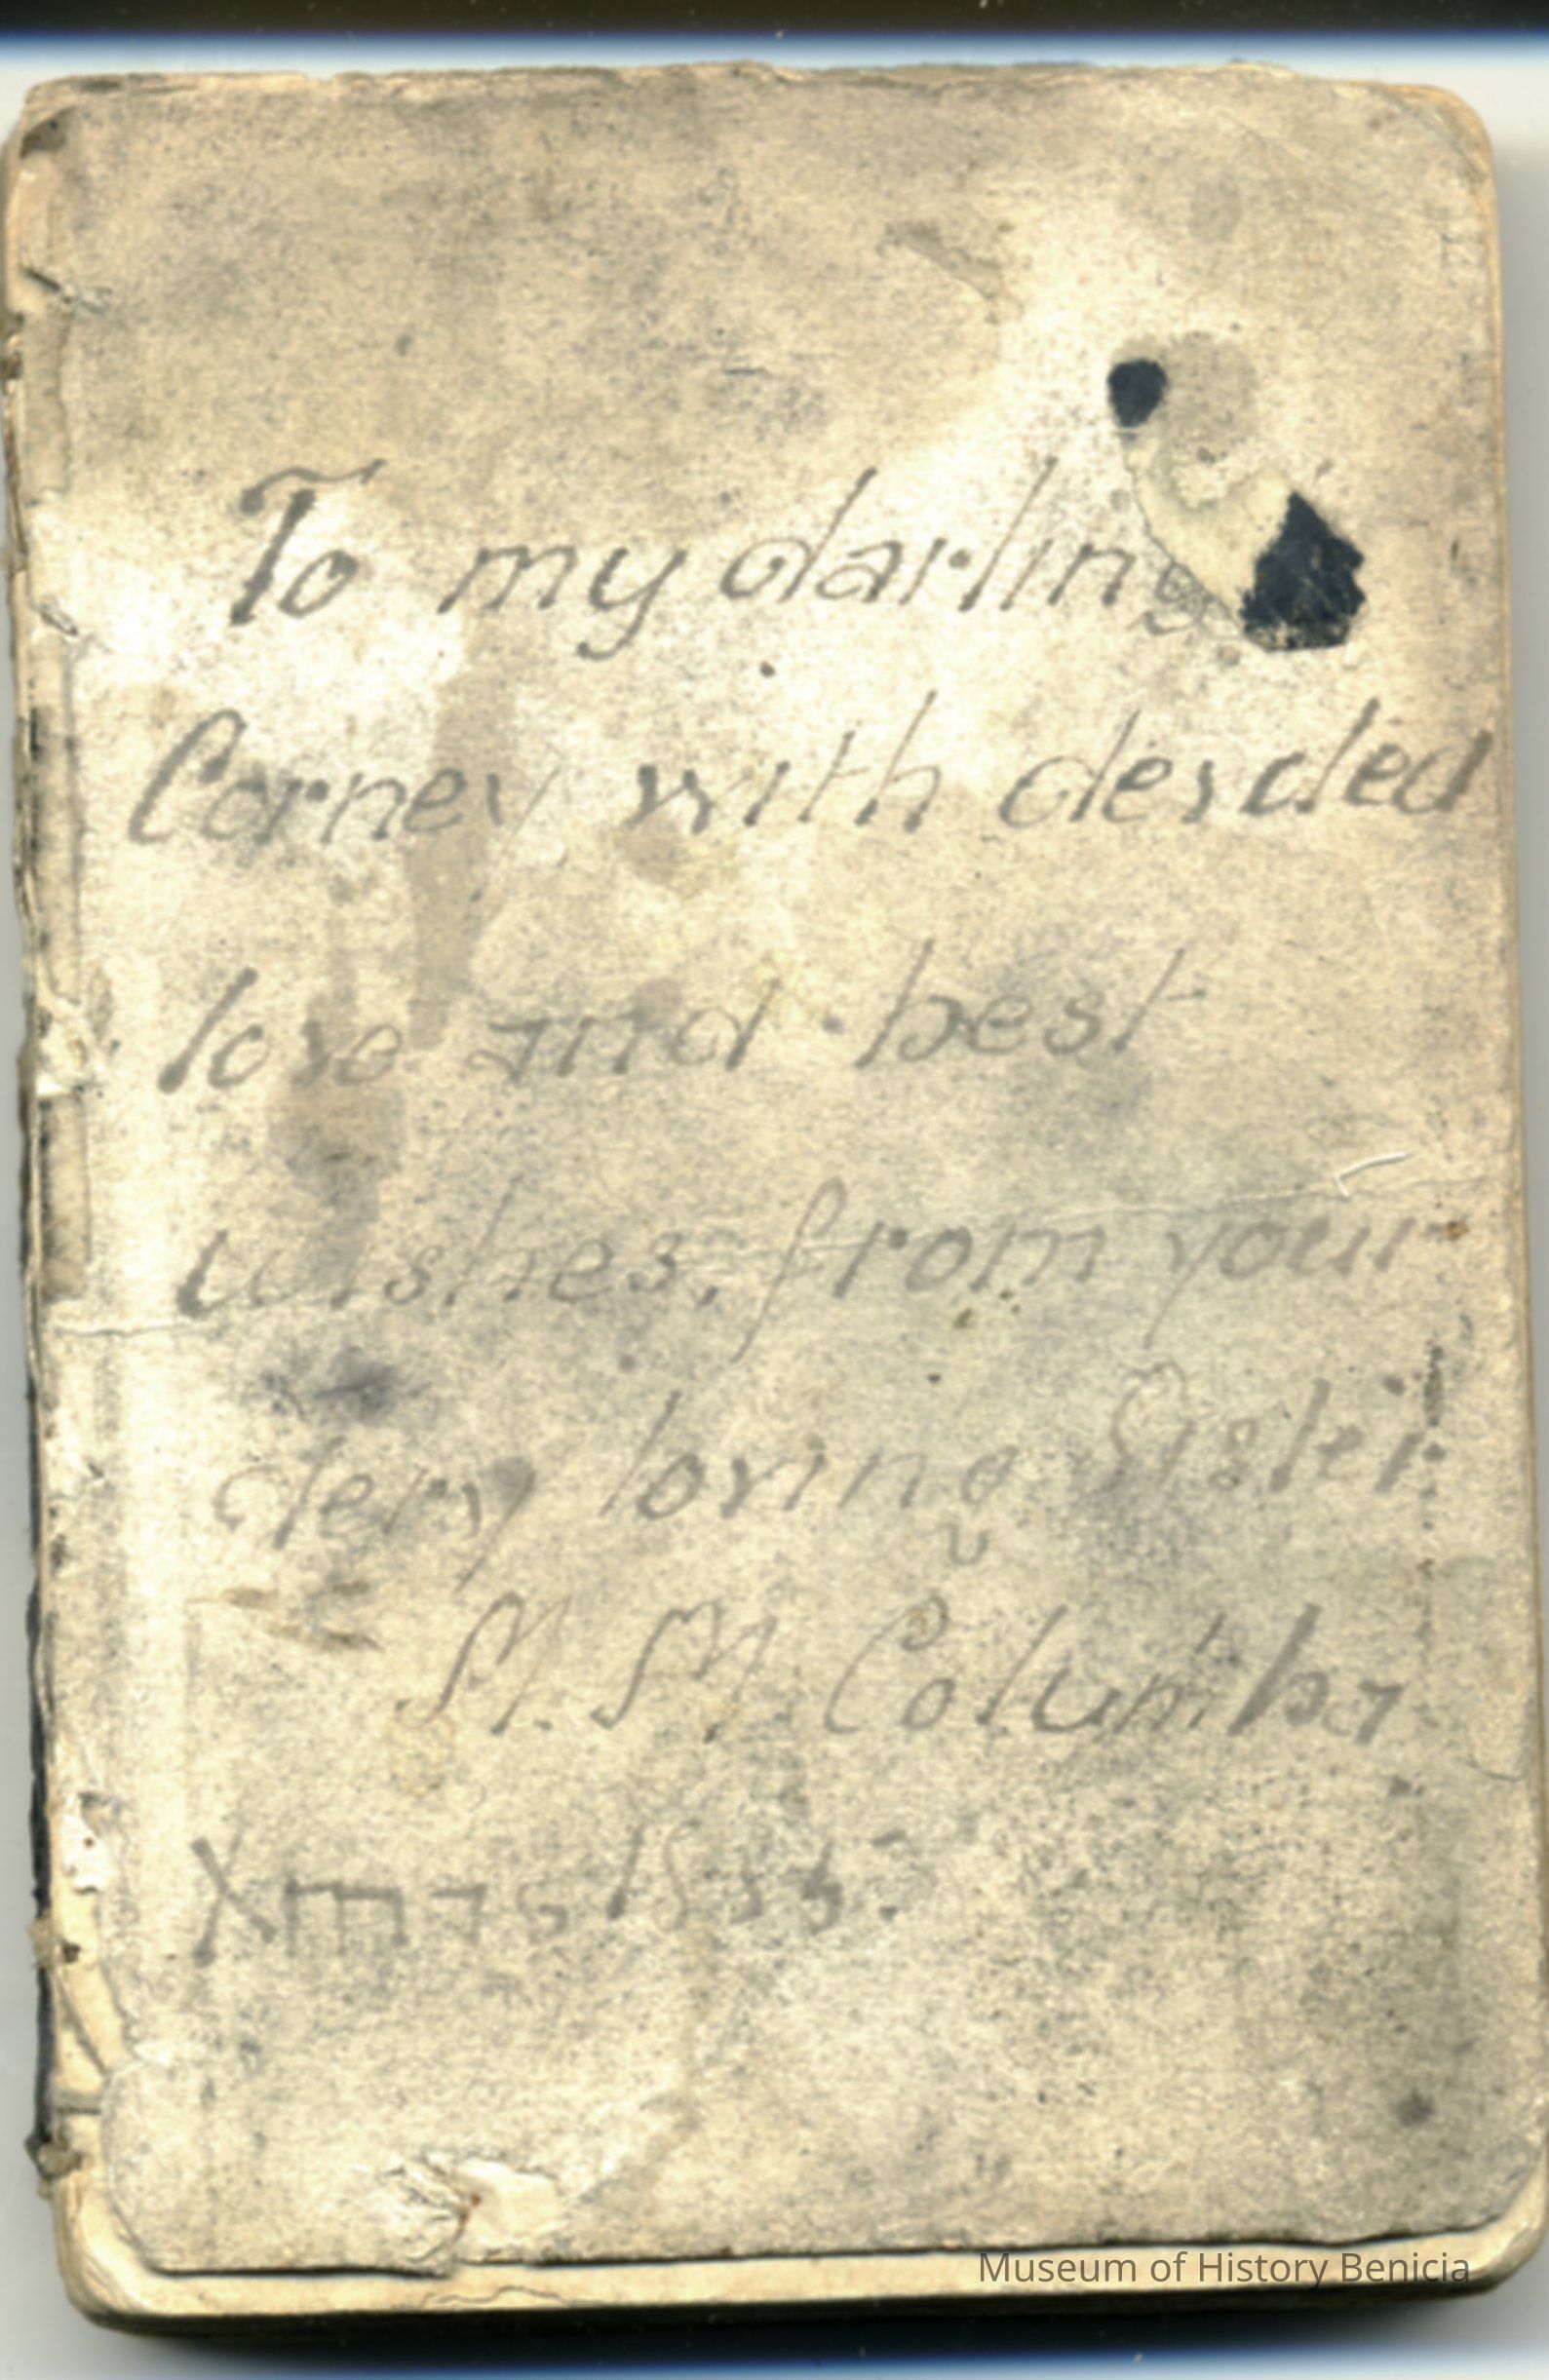 To my darling
Corney with devoted
love and best
wishes, from your
very loving Sister
M. Columba
Xmas
Museum of History Benicia